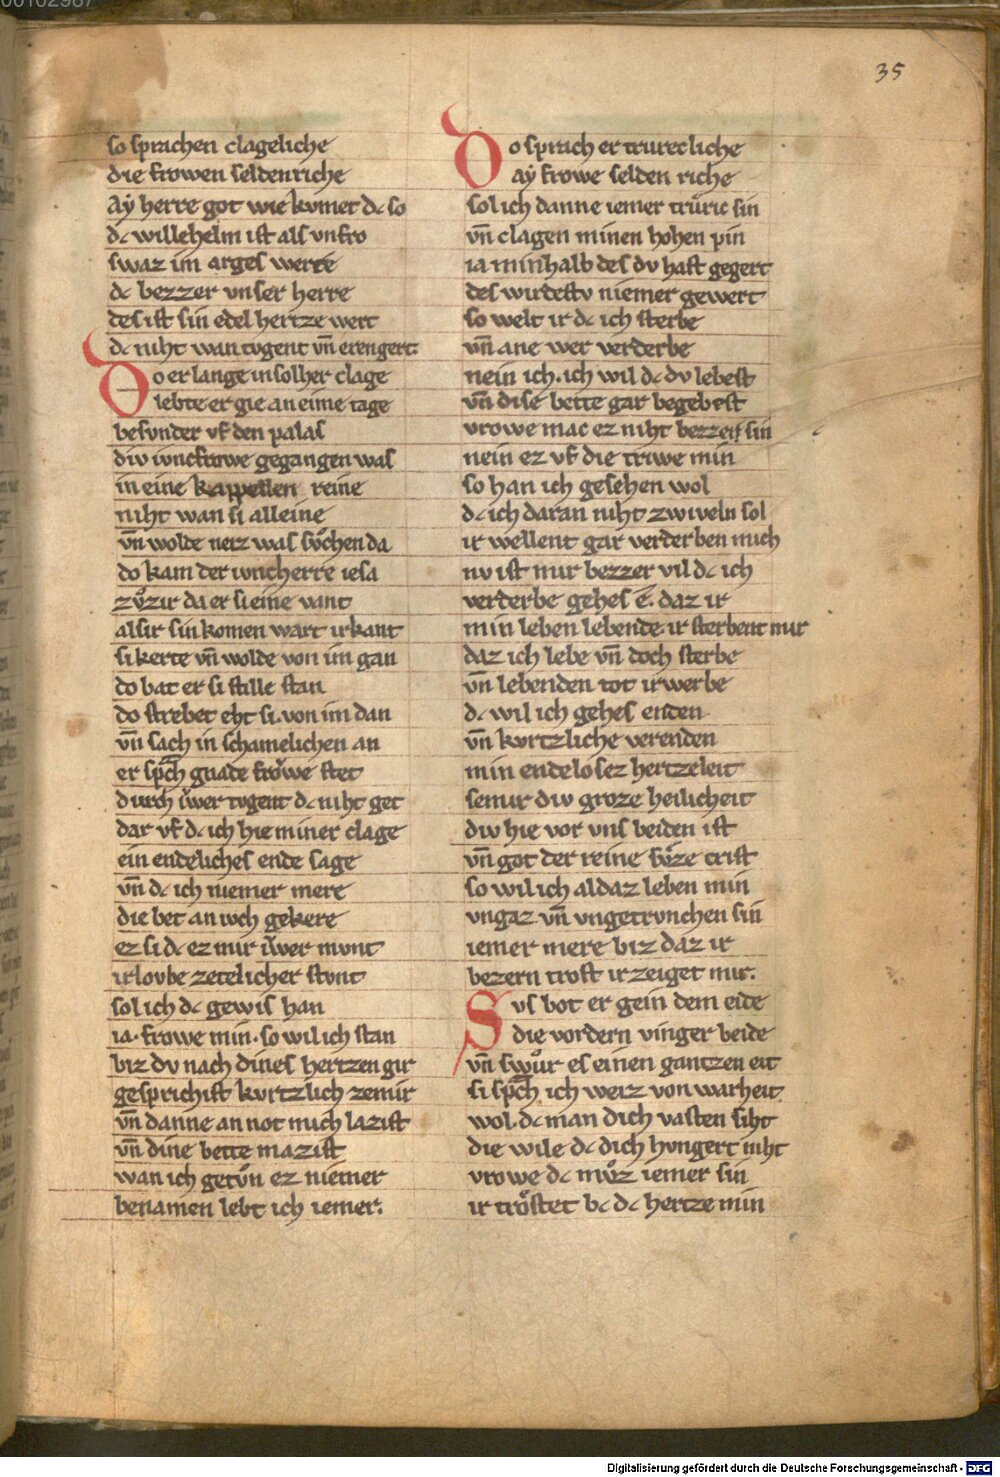 00102987
35
so sprachen clageliche
die frowen seldenriche
Ay herre got wie kvmet dc so
dc willehelm ist als vnfro
swaz im arges werre
dc bezzer vnser herre
des ist sin edel hertze wert
dc niht wan tvgent vn̄ eren gert
Do er lange in solher clage
lebte er gie an eime tage
besvnder vf den palas
div ivncfrowe gegangen was
in eine kappellen reine
niht wan si alleine
vn̄ wolde neiz was sůchen da
do kam der ivncherre iesa
zůzir da er si eine vant
als ir sin komen wart irkant
si kerte vn̄ wolde von im gan
do bat er si stille stan
do strebet eht si von im dan
vn̄ sach in schamelichen an
er sp̄ch gnade frowe stet
durch iwer tvgent dc niht get
dar vf dc ich hie miner clage
ein endeliches ende sage
vn̄ dc ich niemer mere
die bet an ivch gekere
ez si dc ez mir iwer mvnt
irlovbe zetelicher stvnt
sol ich dc gewis han
ia· frowe min· so wil ich stan
biz dv nach dines hertzen gir
gesprichist kvrtzlich zemir
vn̄ danne an not mich lazist
vn̄ dine bette mazist
wan ich getůn ez niemer
benamen lebt ich iemer.
Do sprach er trurecliche
ay frowe selden riche
sol ich danne iemer trůric sin
vn̄ clagen minen hohen pin
ia minhalb des dv hast gegert
des wirdestv niemer gewert
so welt ir dc ich sterbe
vn̄ ane wer verderbe
nein ich. ich wil dc dv lebest
vn̄ dise bette gar begebest
vrowe mac ez niht bezzer sin
nein ez vf die triwe min
so han ich gesehen wol
dc ich daran niht zwiveln sol
ir wellent gar verderben mich
nv ist mir bezzer vil dc ich
verderbe gehes e. daz ir
min leben lebende ir sterbent mir
daz ich lebe vn̄ doch sterbe
vn̄ lebenden tot irwerbe
dc wil ich gehes enden
vn̄ kvrtzliche verenden
min endelosez hertzeleit
semir div groze heilicheit
div hie vor vns beiden ist
vn̄ got der reine sůze crist
so wil ich al daz leben min
vngaz vn̄ vngetrvnchen sin
iemer mere biz daz ir
bezern trost irzeiget mir.
Svs bot er gein dem eide
die vordern vinger beide
vn̄ swůr es einen gantzen eit
si sp̄ch ich weiz von warheit
wol. dc man dich vasten siht
die wile dc dich hvngert niht
vrowe dc můz iemer sin
ir trőstet bc dc hertze min
Digitalisierung gefördert durch die Deutsche Forschungsgemeinschaft - DFG